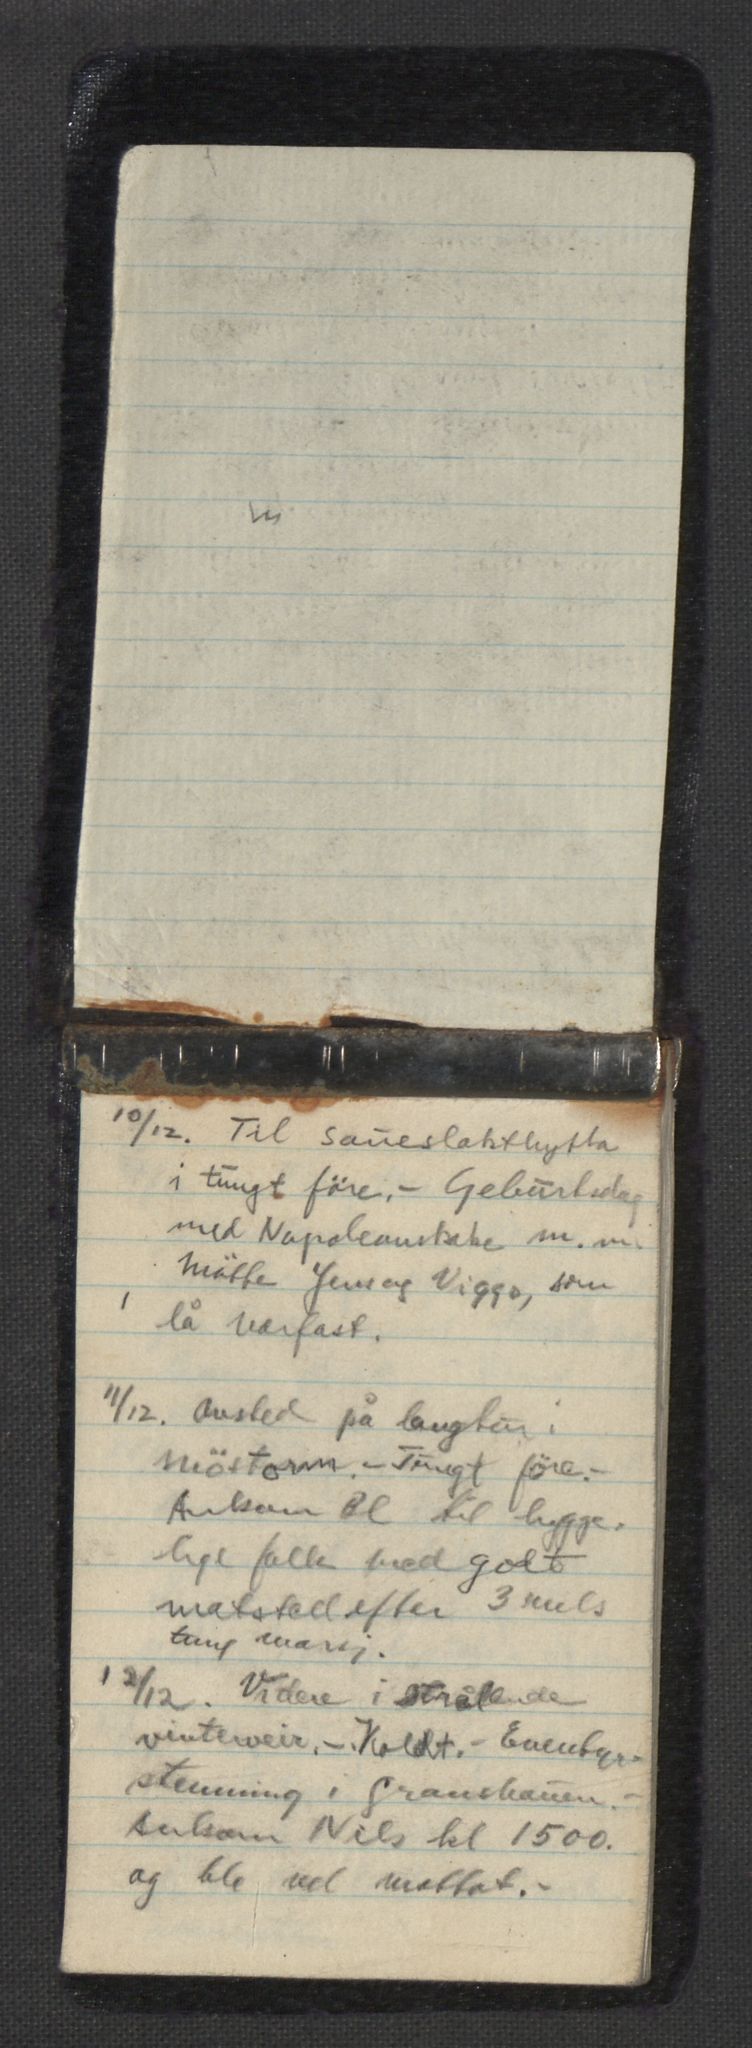 10/12. Til saueslakthytta
i tungt före. - Geburtsdag
med Napoleonskake m. m.
Mötte Jens og Viggo, som
lå værfast.
11/12. Avsted på langtur i
snöstorm. - Tungt före. -
Ankom til hygge-
lige folk med godt
matstell efter 3 mils
tung marsj.
12/12. Videre i strålende
vinterveir. - Koldt. - Eventyr-
stemning i granskauen. -
Ankom Nils kl 1500.
og ble vel mottat. -